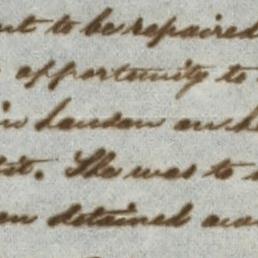 to be repaired
opportunity to
in London on h
it. She was to
en detained